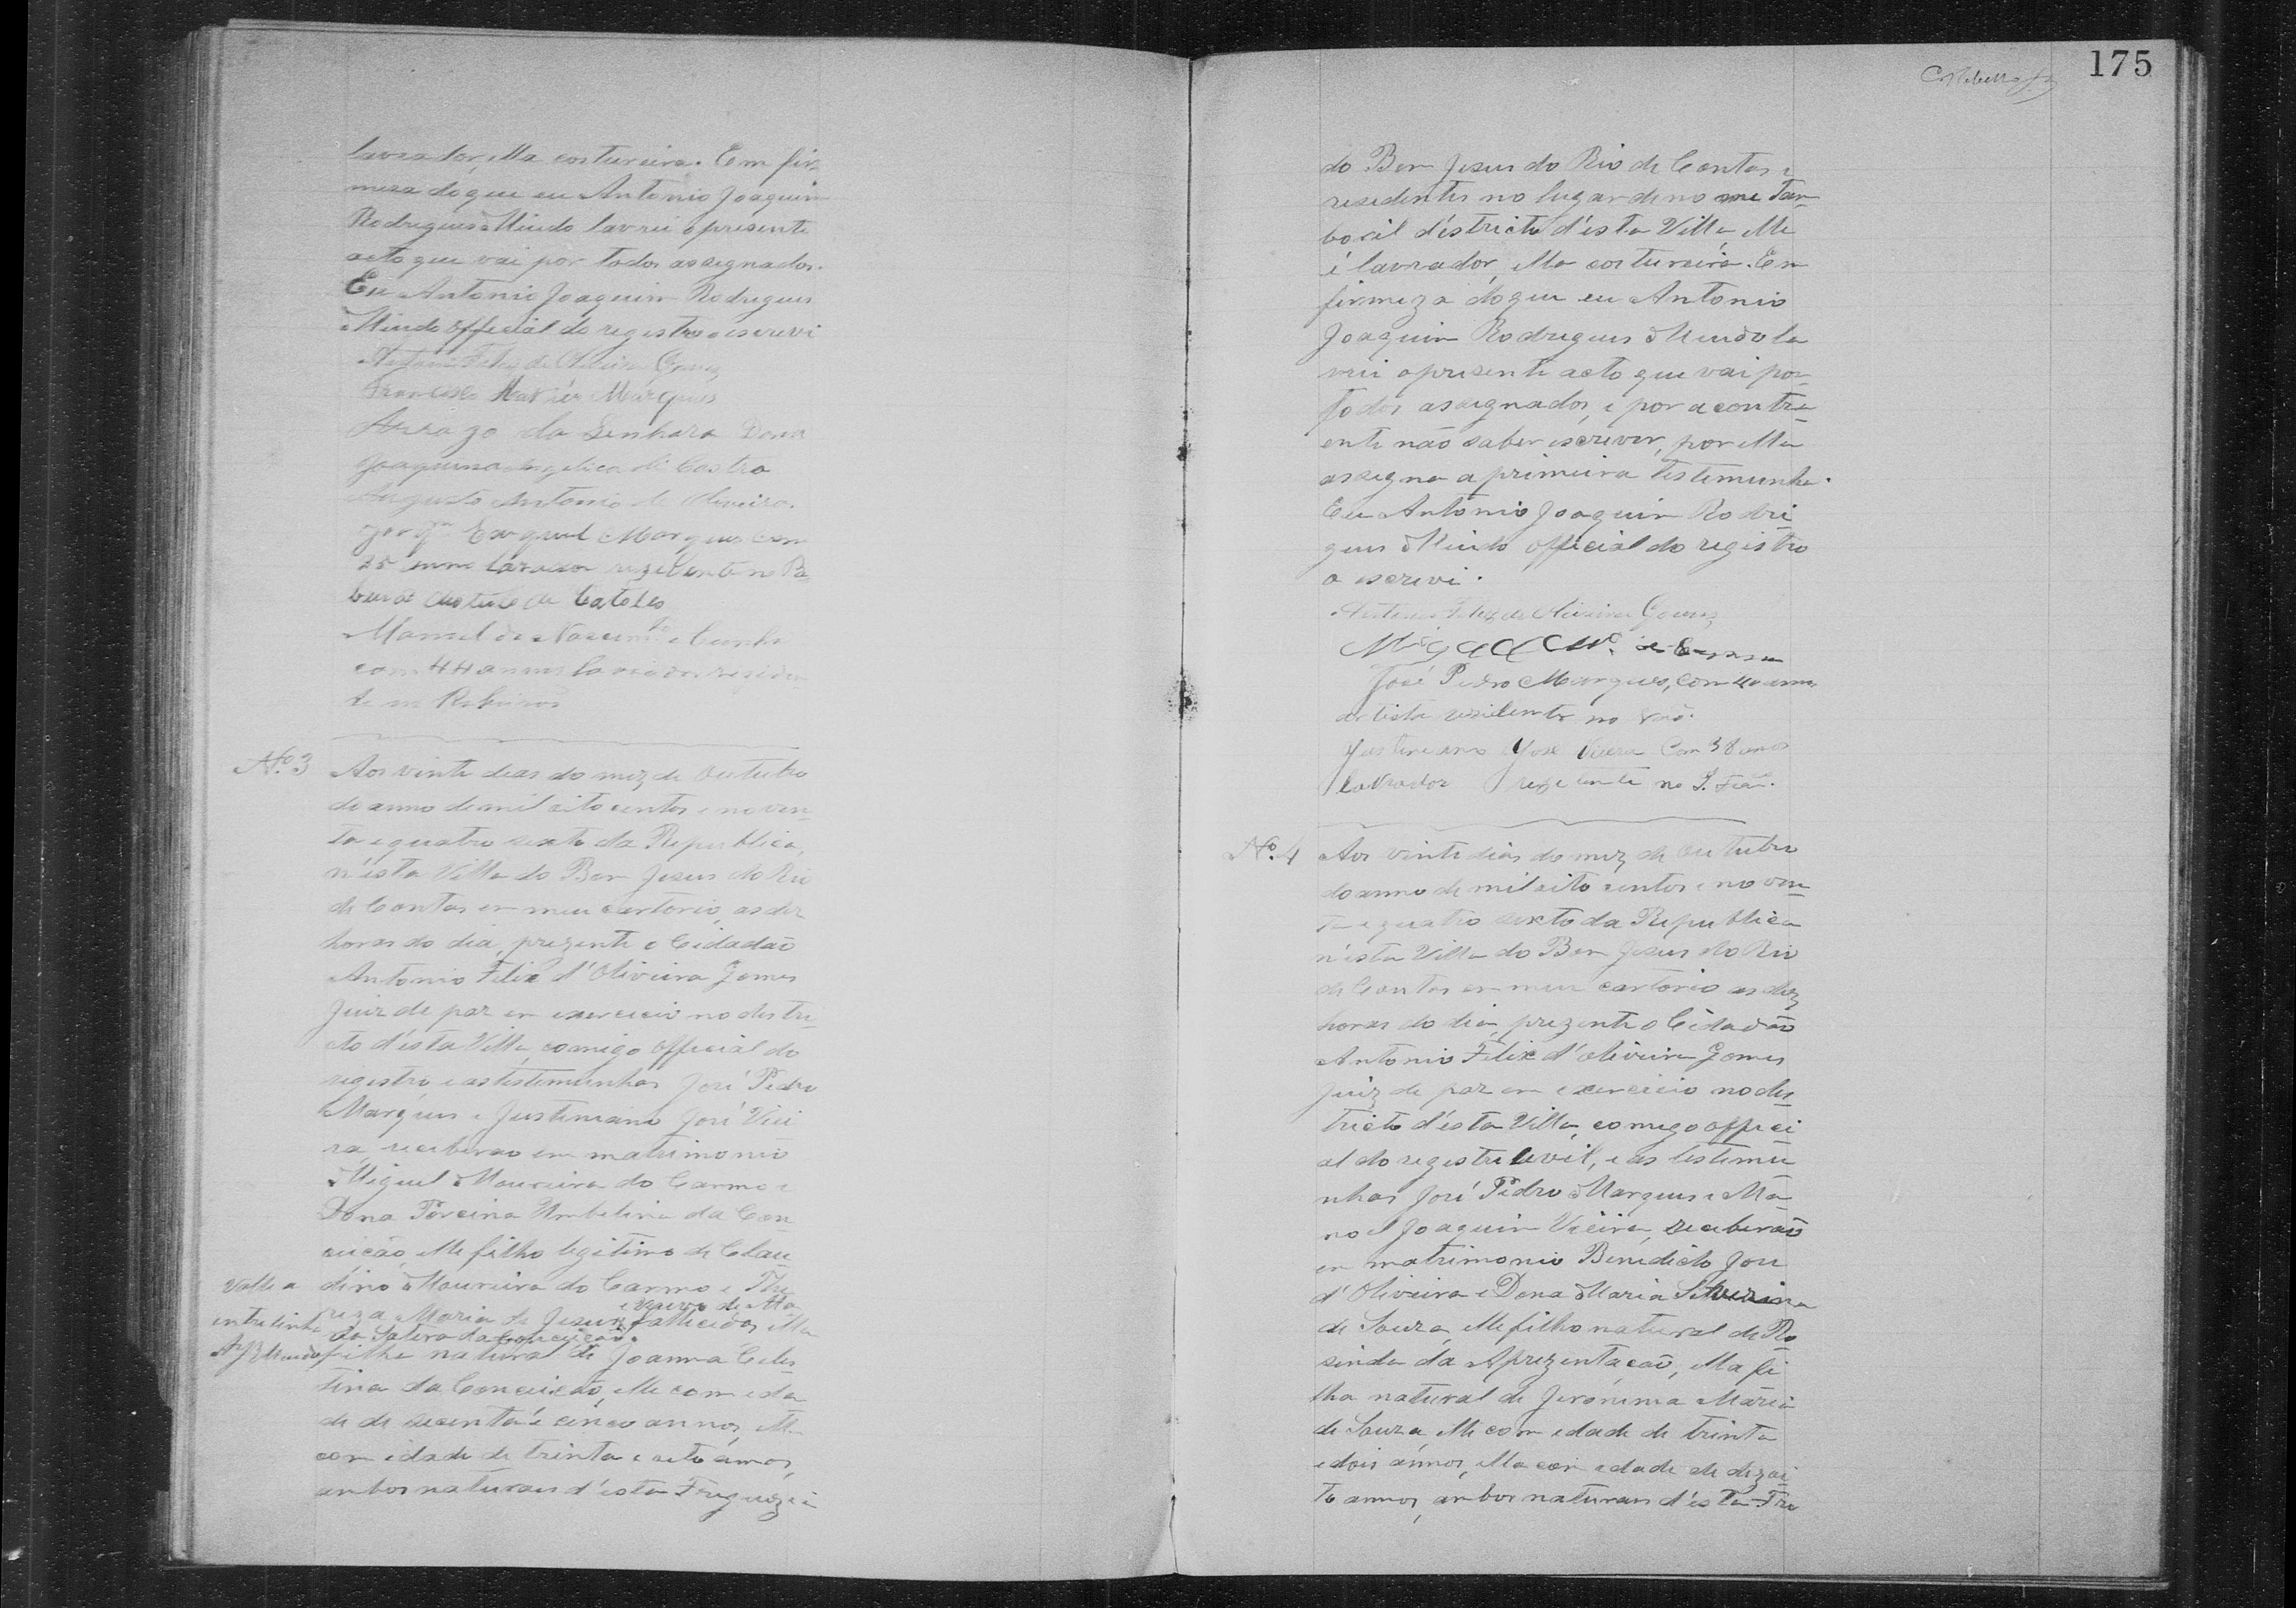 lavrador, ella costureira. Em fir-
meza do que eu Antonio Joaquim
Rodrigues Miudo lavrei o presente
acto que vai por todos assignados.
Eu Antonio Joaquim Rodrigues
Miudo official do registro o escrevi
Antonio Felix de Oliveira Gomes
Francisco Xavier Marques
Arrogo da Senhora Dona
Joaquina Angelica de Castro
Augusto Antonio de Oliveira.
Exequiel Marques com
25 annos lavrador rezidente no
de Catolés
Manoel do Nascimto e Cunha
com 44 annos lavrador reziden
te em
No. 3
Aos vinte dias do mez de Outubro
do anno de mil oito centos e noven-
ta e quatro sexto da Republica,
n'esta Villa do Bom Jesus do Rio
de Contas em meu cartorio, as dez
horas do dia, prezente o Cidadão
Antonio Felix d'Oliveira Gomes
Juiz de paz em exercicio no destri-
cto d'esta Villa, comigo official do
registro e as testemunhas José Pedro
Marques e Justiniano José Viei
ra, receberão em matrimonio
Miguel Moureira do Carmo e
Dona Porcina Umbelina da Con
ceicão, elle filho legitimo de Clau
dino Moureira do Carmo e The
reza Maria de Jesus, fallecidos, ella
e viuvo de Ma
da Conceição.
filha natural de Joanna Celes
tina da Conceicão, elle com eda
de de secenta e cinco annos, ella
com idade de trinta e oito annos,
ambos naturaes d'esta Freguezia
Valle a
entrelinha
A J R Miudo
175
do Bom Jesus do Rio de Contas e
residentes no lugar de no me Tam-
boril déstricto d'esta Villa, elle
é lavrador, ella costureira. Em
firmeza do que eu Antonio
Joaquim Rodrigues Miudo la
vrei o presente acto que vai por
todos assignados, e por a contra-
ente não saber escrever, por ella
assigna a primeira testemunha.
Eu Antonio Joaquim Rodri
gues Miudo official do registro
o escrevi.
Antonio Felix de Oliveira Gomes
José Pedro Marques, com 40 annos
artista rezidente no
Justiniano José Vieira Com 38 anos
lavrador rezidente no
No. 4
Aos vinte dias do mez de Outubro
do anno de mil oito centos e noven-
ta e quatro sexto da Republica
n'esta Villa do Bom Jesus do Rio
de Contas em meu cartorio as dez
horas do dia, prezente o Cidadão
Antonio Felix d'Oliveira Gomes
Juiz de paz em exercicio no des
tricto d'esta Villa, comigo offici
al do registro Civil, e as testemu
nhas José Pedro Marques e Ma
noel Joaquim Vieira, receberão
em matrimonio Benedicto José
d'Oliveira e Dona Maria Silverina
de Souza, elle filho natural de Ro
zinda da Aprezentacão, ella fi
lha natural de Jeronima Maria
de Souza, elle com edade de trinta
e dois annos, ella com edade de dezoi
to annos, ambos naturaes d'esta Fre